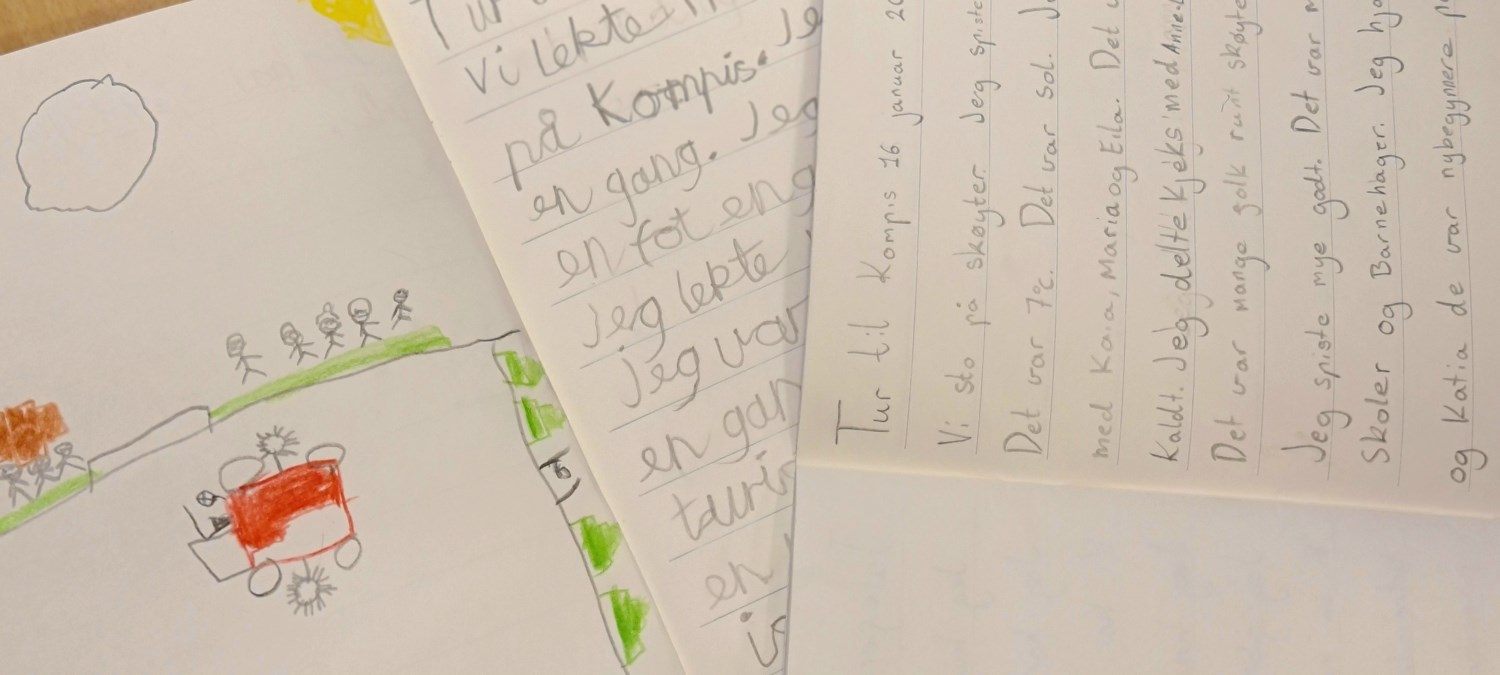 Tur
Vi lekte
på Kompis. Je
en gang. Jeg
en fot eng
jeg lekte
jeg var
en gan
turin
en
Tur til Kompis 16 januar 20
Vi sto på skøyter. Jeg spiste
Det var 7°c. Det var sol. J
med Kaia, Maria og Eila. Det
Kaldt. Jeg delte kjeks med
Det var mange golk runt skøyte
Jeg spiste mye godt. Det var
Skoler og Barnehager. Jeg hj
og Katia de var nybegynnere p